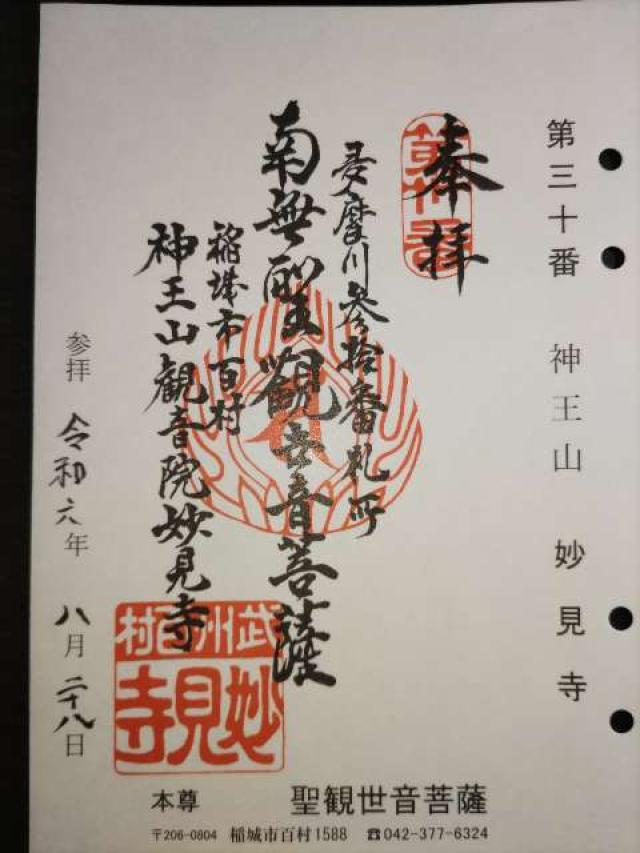 第三十番 神王山 妙見寺
奉拝
多摩川参拾番札所
南無聖観世音菩薩
稲城市百村
神王山観音院妙見寺
武州百村
妙見寺
参拝 令和六年 八月二十八日
本尊 聖観世音菩薩
〒206-0804 稲城市百村1588 ☎042-377-6324